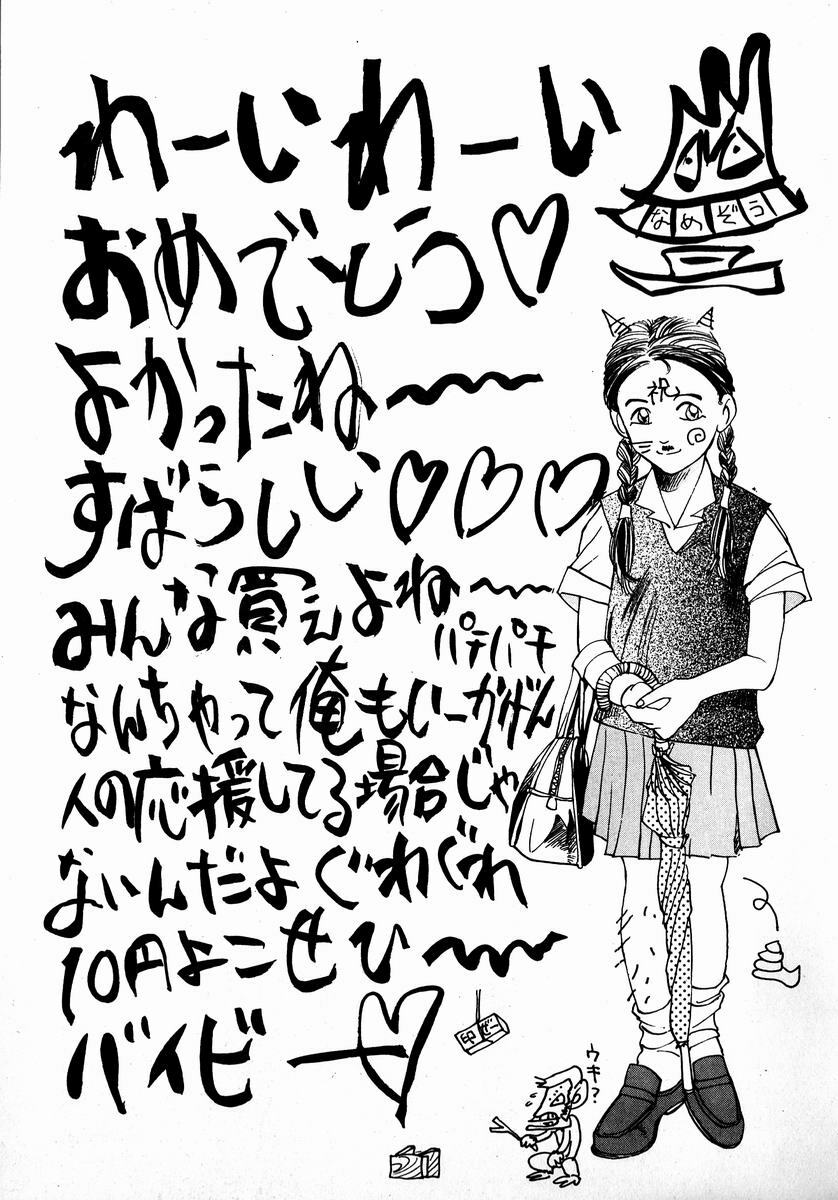 わーいわーい
おめでとう♡
よかったね〜〜
すばらしい♡♡♡
みんな買えよね〜〜
パチパチ
なんちゃって俺もいーかげん
人の応援してる場合じゃ
ないんだよ ぐわぐれ
10円よこせひ〜〜
バイビー♡
なめぞう
祝
ウキ?
印